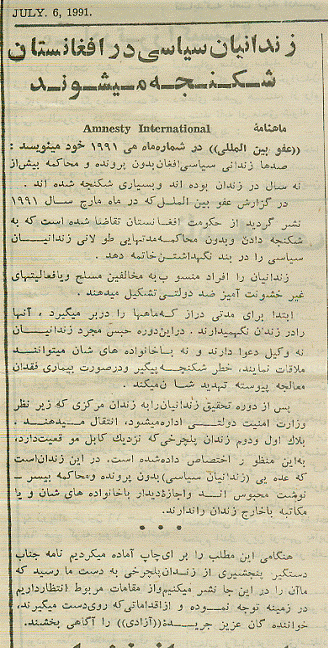 JULY. 6, 1991.
زندانیان سیاسی در افغانستان
شکنجه میشوند
ماهنامهٔ Amnesty International
((عفو بین المللی)) در شماره ماه می ۱۹۹۱ خود مینویسد :
صدها زندانی سیاسی افغان بدون پرونده و محاکمه بیش از
نه سال در زندان بوده اند و بسیاری شکنجه شده اند .
در گزارش عفو بین الملل که در ماه مارچ سال ۱۹۹۱
نشر گردید از حکومت افغانستان تقاضا شده است که به
شکنجه دادن و بدون محاکمه مدتهایی طولانی زندانیــان
سیاسی را در بند نگهداشتن خاتمه دهد .
زندانیان را افراد منسوب به مخالفین مسلح و یا فعالیتهای
غیر خشونت آمیز ضد دولتی تشکیل میدهند .
ابتدا برای مدتی دراز که ماهها را دربر میگیرد ، آنها
را در زندان نگهمیدارند . در این دوره حبس مجرد زندانیــان
نه وکیل دعوا دارند و نه با خانواده های شان میتواننــد
ملاقات نمایند. خطر شکنجه پیگیر و در صورت بیماری فقدان
معالجه پیوسته تهدید شان میکند .
پس از دوره تحقیق زندانیان را به زندان مرکزی که زیر نظر
وزارت امنیت دولتی اداره میشود، انتقال میدهنــد ،
بلاك اول و دوم زندان پلچرخی که نزدیك کابل موقعیت دارد،
به این منظور اختصاص داده شده است. در این زندان است
که عده یی (زندانیان سیاسی) بدون پرونده و محاکمه بیســر ـ
نوشت محبوس انــد و اجازهٔ دیدار با خانواده های شان و یا
مکاتبه با خارج زندان را ندارند.
• • •
هنگامی این مطلب را برای چاپ آماده میکردیم نامه جناب
دستگیر پنجشیری از زندان پلچرخی به دست ما رسید که
ما آن را در این جا نشر میکنیم و از مقامات مربوط انتظار داریم
در زمینه توجه نموده و از اقداماتی که روی دست میگیرند،
خواننده گان عزیز جریــدهٔ ((آزادی)) را آگاهی بخشند.